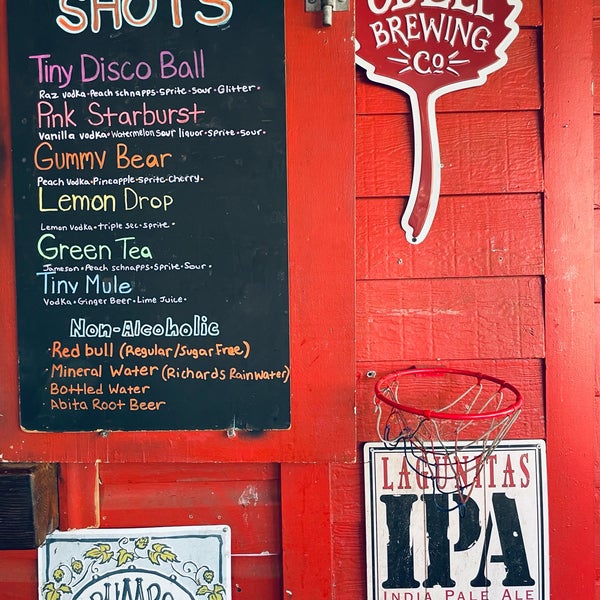 SHOTS
Tiny Disco Ball
Raz vodka•Peach schnapps•Sprite•Sour•Glitter•
Pink Starburst
Vanilla vodka•Watermelon sour liquor•Sprite•Sour•
Gummy Bear
Peach Vodka•Pineapple•Sprite•Cherry•
Lemon Drop
Lemon Vodka•Triple sec•Sprite•
Green Tea
Jameson•Peach schnapps•Sprite•Sour•
Tiny Mule
Vodka•Ginger Beer•Lime Juice•
Non-Alcoholic
•Red bull (Regular/Sugar Free)
•Mineral Water (Richards Rainwater)
•Bottled Water
•Abita Root Beer
ODELL
BREWING
Co
LAGUNITAS
IPA
INDIA PALE ALE